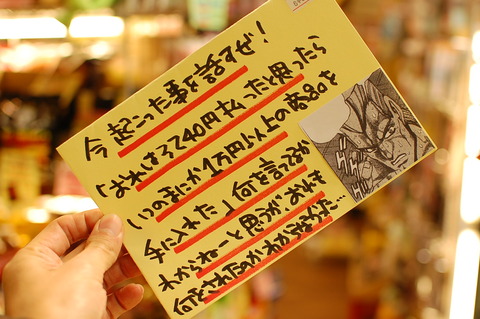 今起こった事を話すぜ!
「おれさろて40円払ったと思ったら
いつのまにか1万円分以上の商品を
手に入れた」何を言ってるか
わからねーと思うが おれも
何をされたのかわからなくなった…
ゴゴゴ
ゴゴゴ